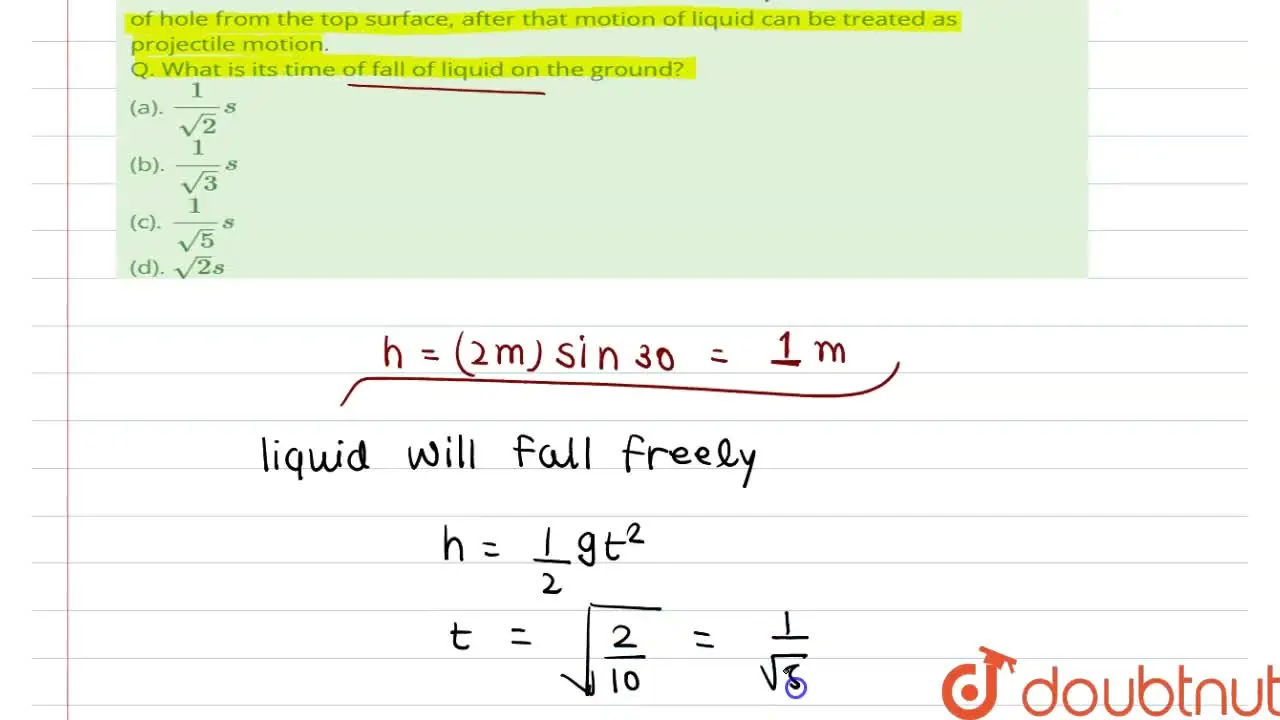 of hole from the top surface, after that motion of liquid can be treated as
projectile motion.
Q. What is its time of fall of liquid on the ground?
(a). 1/√2 s
(b). 1/√3 s
(c). 1/√5 s
(d). √2s
h = (2m) sin 30 = 1 m
liquid will fall freely
h = 1/2 gt²
t = √(2/10) = 1/√5
doubtnut